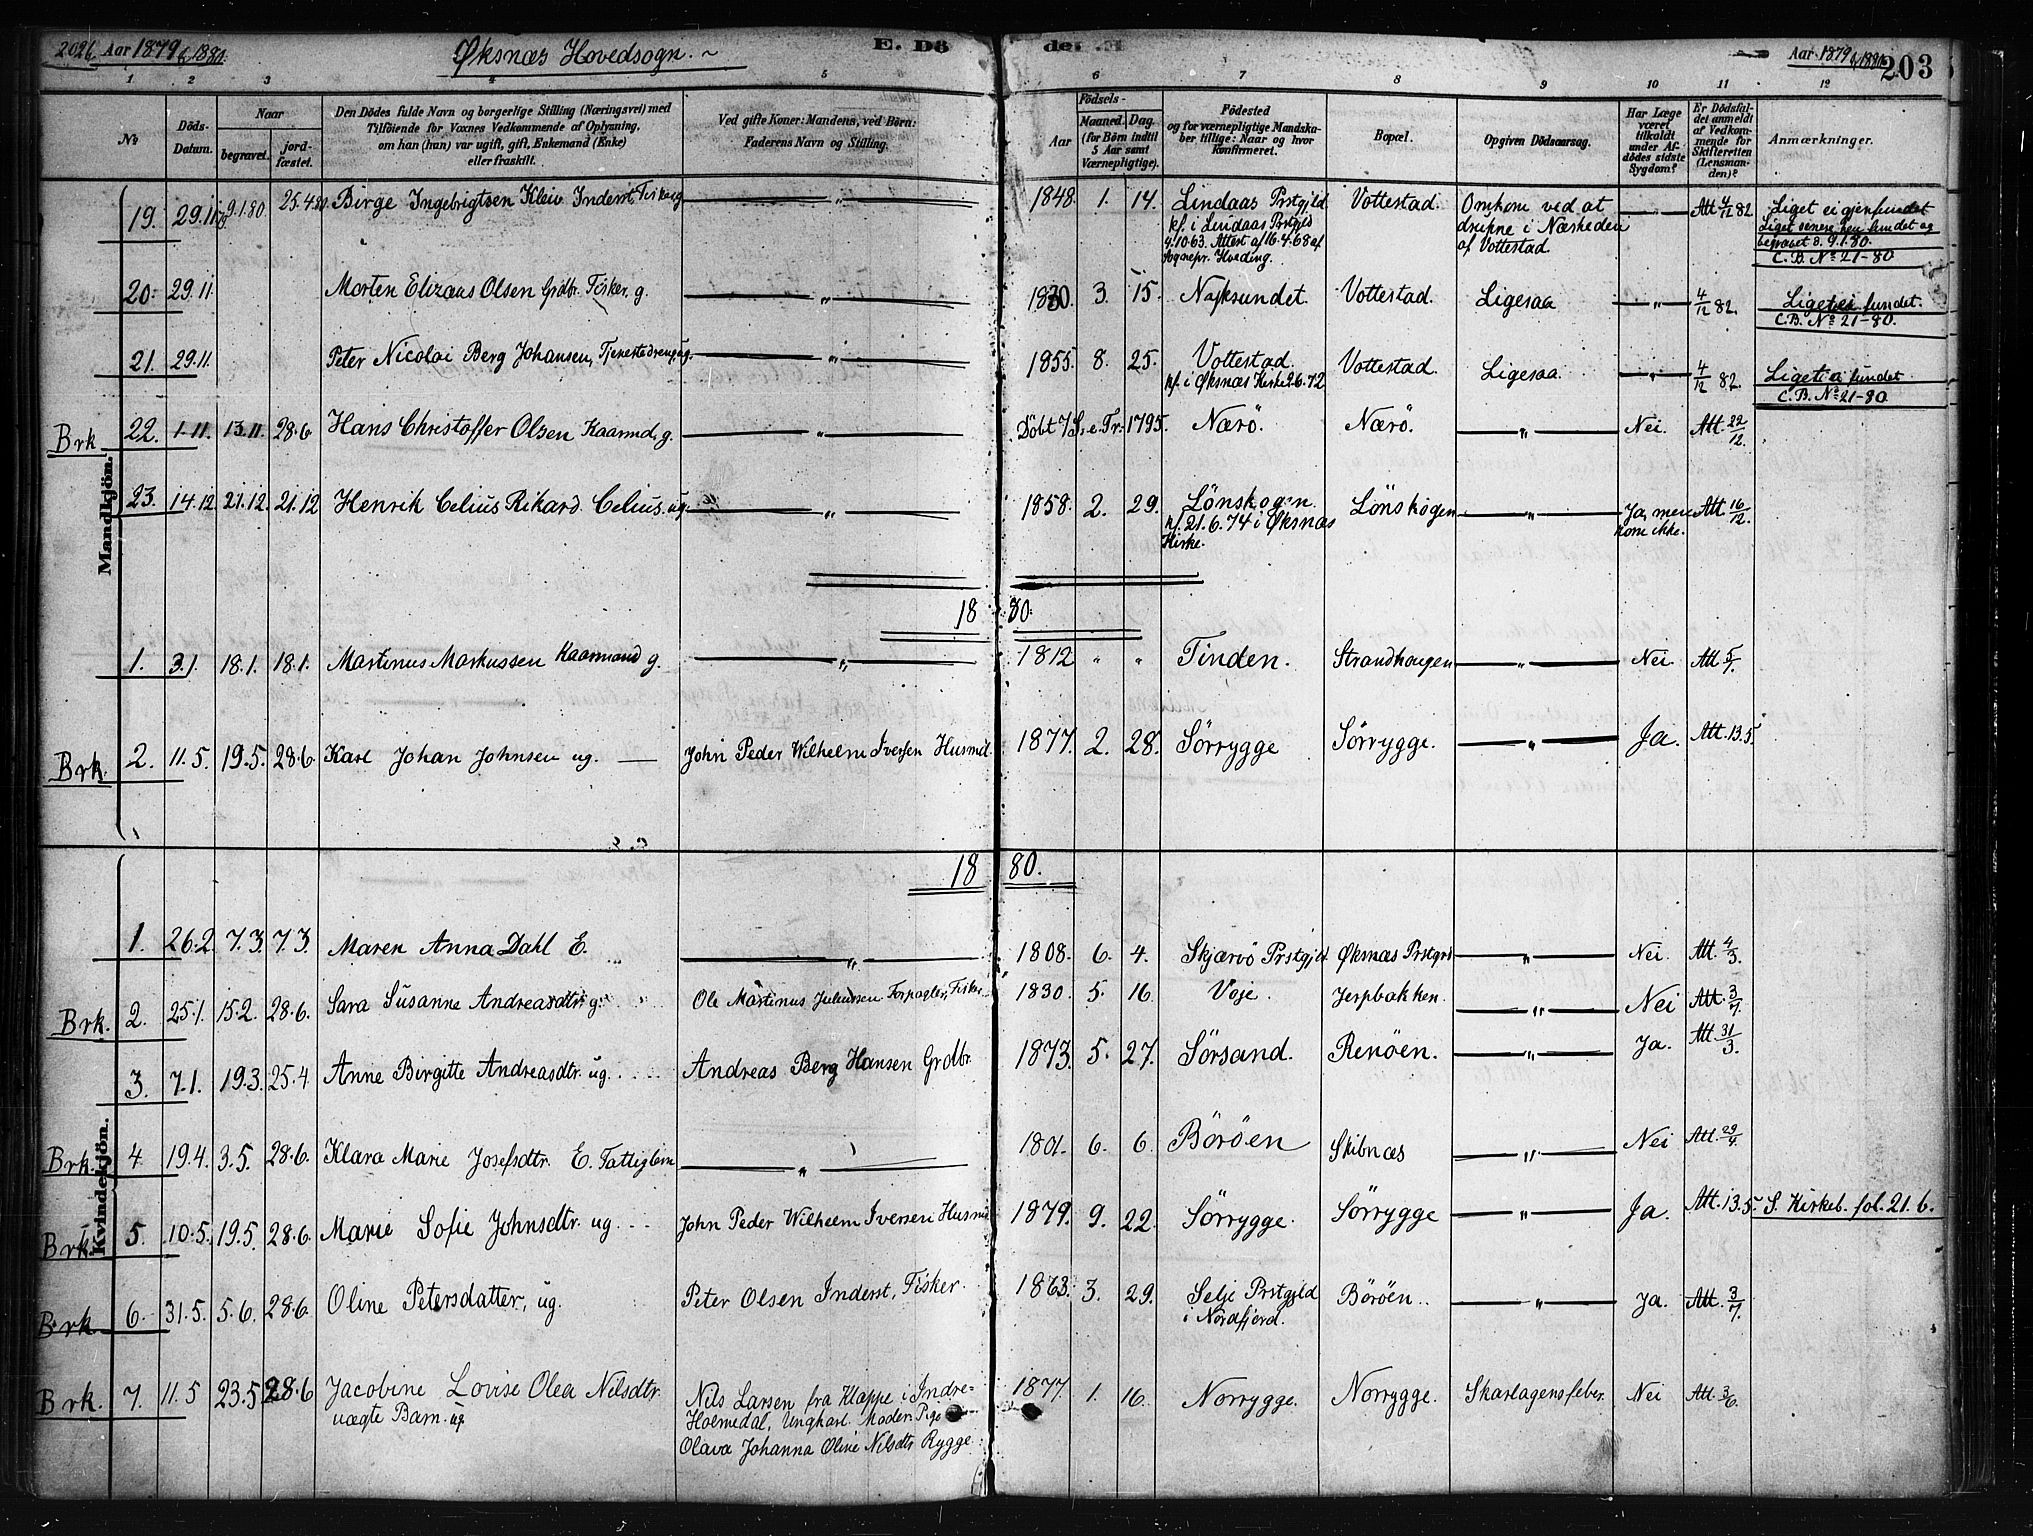 202b Aar 1879 & 1880. Øksnæs Hovedsogn. E. Dö de. Aar 1879 & 1880 203
1 2 3 4 5 6 7 8 9 10 11 12
No Döds-Datum. Naar begravet. jord-fæstet. Den Dödes fulde Navn og borgerlige Stilling (Næringsvei) med Tilföiende for Voxnes Vedkommende af Oplysning, om han (hun) var ugift, gift, Enkemand (Enke) eller fraskilt. Ved gifte Koner: Mandens, ved Börn: Faderens Navn og Stilling. Födsels- Aar Maaned. Dag. (for Börn indtil 5 Aar samt Værnepligtige). Födested og for værnepligtige Mandskaber tillige: Naar og hvor Konfirmeret. Bopæl. Opgiven Dödsaarsag. Har Læge været tilkaldt under Afdödes sidste Sygdom? Er Dödsfaldet anmeldt af Vedkommende for Skifteretten (Lensmanden)? Anmærkninger.
Mandkjön.
19. 29.11. 9.1.80. 25.4.80. Birge Ingebrigtsen Kleiv Inderst, Fisker, g — „ — 1848. 1. 14. Lindaas Prstgjld. Vottestad. Omkom ved at — „ — Att 4/12 82. Liget ei gjenfundet
kf. i Lindaas Prstgjld drukne i Nærheden Liget senere hen fundet og
4.10 63. Attest af 16.4.68 af af Vottestad. begravet 8. 9.1.80.
Sognepr. Hveding. C.B. No 21-80
20. 29.11. Morten Elizæus Olsen Grdbr. Fisker, g. — „ — 1830. 3. 15. Vottestad. Ligesaa — „ — 4/12 82. Liget ei fundet.
C.B. No 21-80.
21. 29.11. Peter Nicolai Berg Johansen, Tjenestedreng ug. — „ — 1855. 8. 25. Vottestad. Vottestad. Ligesaa. — „ — 4/12 82. Liget ei fundet
kf. i Øksnæs Kirke 2.6.72 C.B. No 21-80
Brk 22. 1.11. 13.11. 28.6 Hans Christoffer Olsen Kaarmd, g. — „ — Döbt 7 S. e. Tr. 1795. Nærö. Nærö. — „ — Nei. Att. 22/12.
23. 14.12. 21.12. 21.12 Henrik Celius Rikard Celius. ug. — „ — 1858. 2. 29. Lönskogen. Lönskogen — „ — Ja, men Att 16/12.
kf. 21.6.74 i Øksnæs kom ikke.
Kirke.
18 80.
1. 3.1. 18.1. 18.1. Martinus Markussen Kaarmand g. — „ — 1812 „ „ Tinden. Strandhaugen — „ — Nei. Att. 5/1.
Brk. 2. 11.5. 19.5. 28.6. Karl Johan Johnsen ug. — John Peder Wilhelm Iversen Husmd. 1877. 2. 28. Sörrygge Sörrygge. — „ — Ja. Att. 13.5.
18 80.
Kvindekjön.
1. 26.2 7.3. 7.3 Maren Anna Dahl E. — „ — 1808. 6. 4. Skjærvö Prstgjld. Øksnæs Prstgrd — „ — Nei. Att. 4/3.
Brk. 2. 25.1. 15.2. 28.6. Sara Susanne Andreasdtr g. Ole Martinus Juliussen Forpagter, Fisker 1830. 5. 16. Voje. Jerpbakken. — „ — Nei Att. 3/7.
3. 7.1. 19.3. 25.4. Anne Birgitte Andreasdtr. ug. Andreas Berg Hansen Grdbr. 1873. 5. 27. Sörsand. Renöen. — „ — Ja. Att. 31/3.
Brk. 4. 19.4. 3.5. 28.6. Klara Marie Josefsdtr. E. Fattiglem — „ — 1801. 6. 6. Böröen Skibnæs — „ — Nei Att. 29/4.
Brk. 5. 10.5. 19.5. 28.6. Marie Sofie Johnsdtr. ug. John Peder Wilhelm Iversen Husmd 1879. 9. 22. Sörrygge. Sörrygge — „ — Ja. Att. 13.5. S. Kirkeb. fol. 21.6.
Brk. 6. 31.5. 5.6. 28.6. Oline Petersdatter, ug. Peter Olsen Inderst, Fisker. 1863. 3. 29. Selje Prstgjld Böröen. — „ — Ja. Att. 3/7.
i Nordfjord.
Brk. 7. 11.5 23.5. 28.6 Jacobine Lovise Olea Nilsdtr. Nils Larsen fra Klappe i Indre- 1877. 1. 16. Norrygge. Norrygge. Skarlagensfeber. Nei Att. 3/6.
uægte Barn. ug Holmedal, Ungkarl. Moder: Pige
Olava Johanna Oline Nilsdtr Rygge.